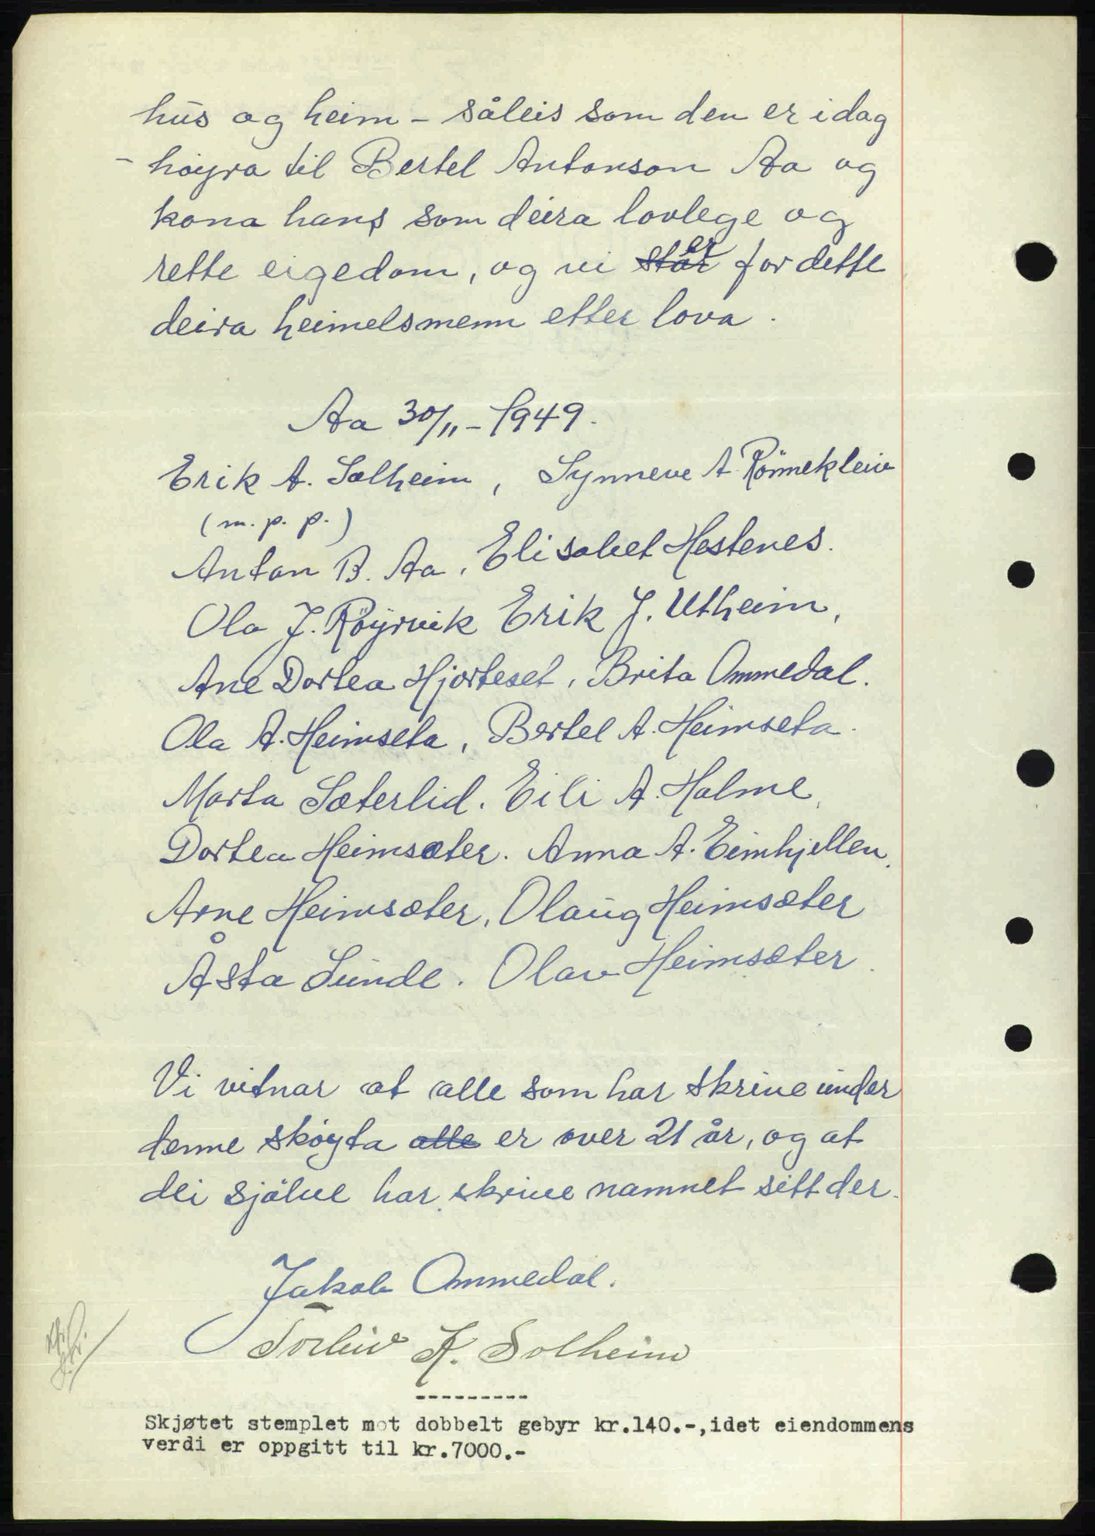 hus og heim – såleis som den er i dag
– høyra til Bertel Antonson Aa og
kona hans som deira lovlege og
rette eigedom, og vi står er for dette
deira heimelsmenn etter lova.
Aa 30/11 – 1949.
Erik A. Solheim, Synneve A. Rønnekleiv
(m. p. p.)
Anton B. Aa. Elisabet Hestenes.
Ola J. Røyrvik Erik J. Utheim,
Ane Dortea Hjorteset, Brita Ommedal.
Ola A. Heimseta, Bertel A. Heimseta.
Marta Sæterlid. Eili A. Holme,
Dortea Heimsæter. Anna A. Eimhjellen.
Arne Heimsæter, Olaug Heimsæter
Åsta Sunde. Olav Heimsæter.
Vi vitnar at alle som har skrive under
denne skøyta alle er over 21 år, og at
dei sjølve har skrive namnet sitt der.
Jakob Ommedal.
Torleiv K. Solheim
---------
Skjøtet stemplet mot dobbelt gebyr kr.140.-,idet eiendommens
verdi er oppgitt til kr.7000.-